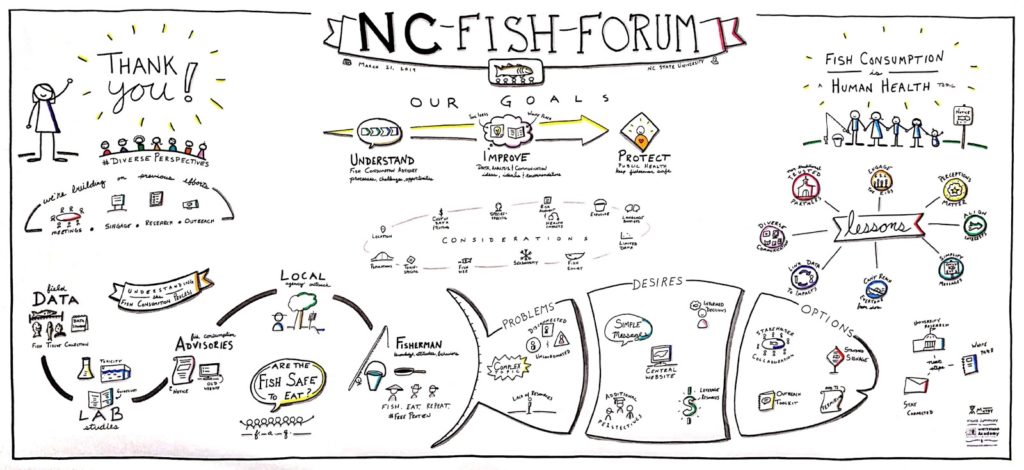 NC-FISH-FORUM
MARCH 21, 2019
NC STATE UNIVERSITY
THANK
you!
#DIVERSE PERSPECTIVES
we're building on previous efforts
MEETINGS • SINGAGE • RESEARCH • OUTREACH
OUR GOALS
UNDERSTAND
FISH CONSUMPTION ADVISORY
processes, challenges, opportunities
IMPROVE
PROTECT
PUBLIC HEALTH
keep fisherman safe
CONSIDERATIONS
LOCATION
FISH CONSUMPTION
is
A HUMAN HEALTH TOPIC
NOTICE
lessons
TRUSTED
PARTNERS
ENGAGE
THE KIDS
PERCEPTIONS
MATTER
ALIGN
INTERESTS
SIMPLIFY
MESSAGES
CAN'T REACH
EVERYONE
LINK DATA
TO IMPACTS
DIVERSE
COMMUNICATION
UNDERSTANDING
the
FISH CONSUMPTION PROCESS
field
DATA
FISH TISSUE COLLECTION
TOXICITY
LAB
studies
fish consumption
ADVISORIES
NOTICE
WEBSITE
LOCAL
agency outreach
ARE THE
FISH SAFE
TO EAT?
FISHERMAN
knowledge, attitudes, behaviors
FISH. EAT. REPEAT.
#FREE PROTEIN
PROBLEMS
DISCONNECTED
COMPLEX
TOPIC
LACK OF RESOURCES
DESIRES
SIMPLE
MESSAGES
INFORMED
DECISIONS
CENTRAL
WEBSITE
ADDITIONAL
PERSPECTIVES
LEVERAGE
RESOURCES
OPTIONS
STAKEHOLDER
COLLABORATION
STANDARD
SIGNAGE
OUTREACH
TOOLKIT
UNIVERSITY
RESEARCH
next
steps
WHITE
PAPER
STAY
CONNECTED